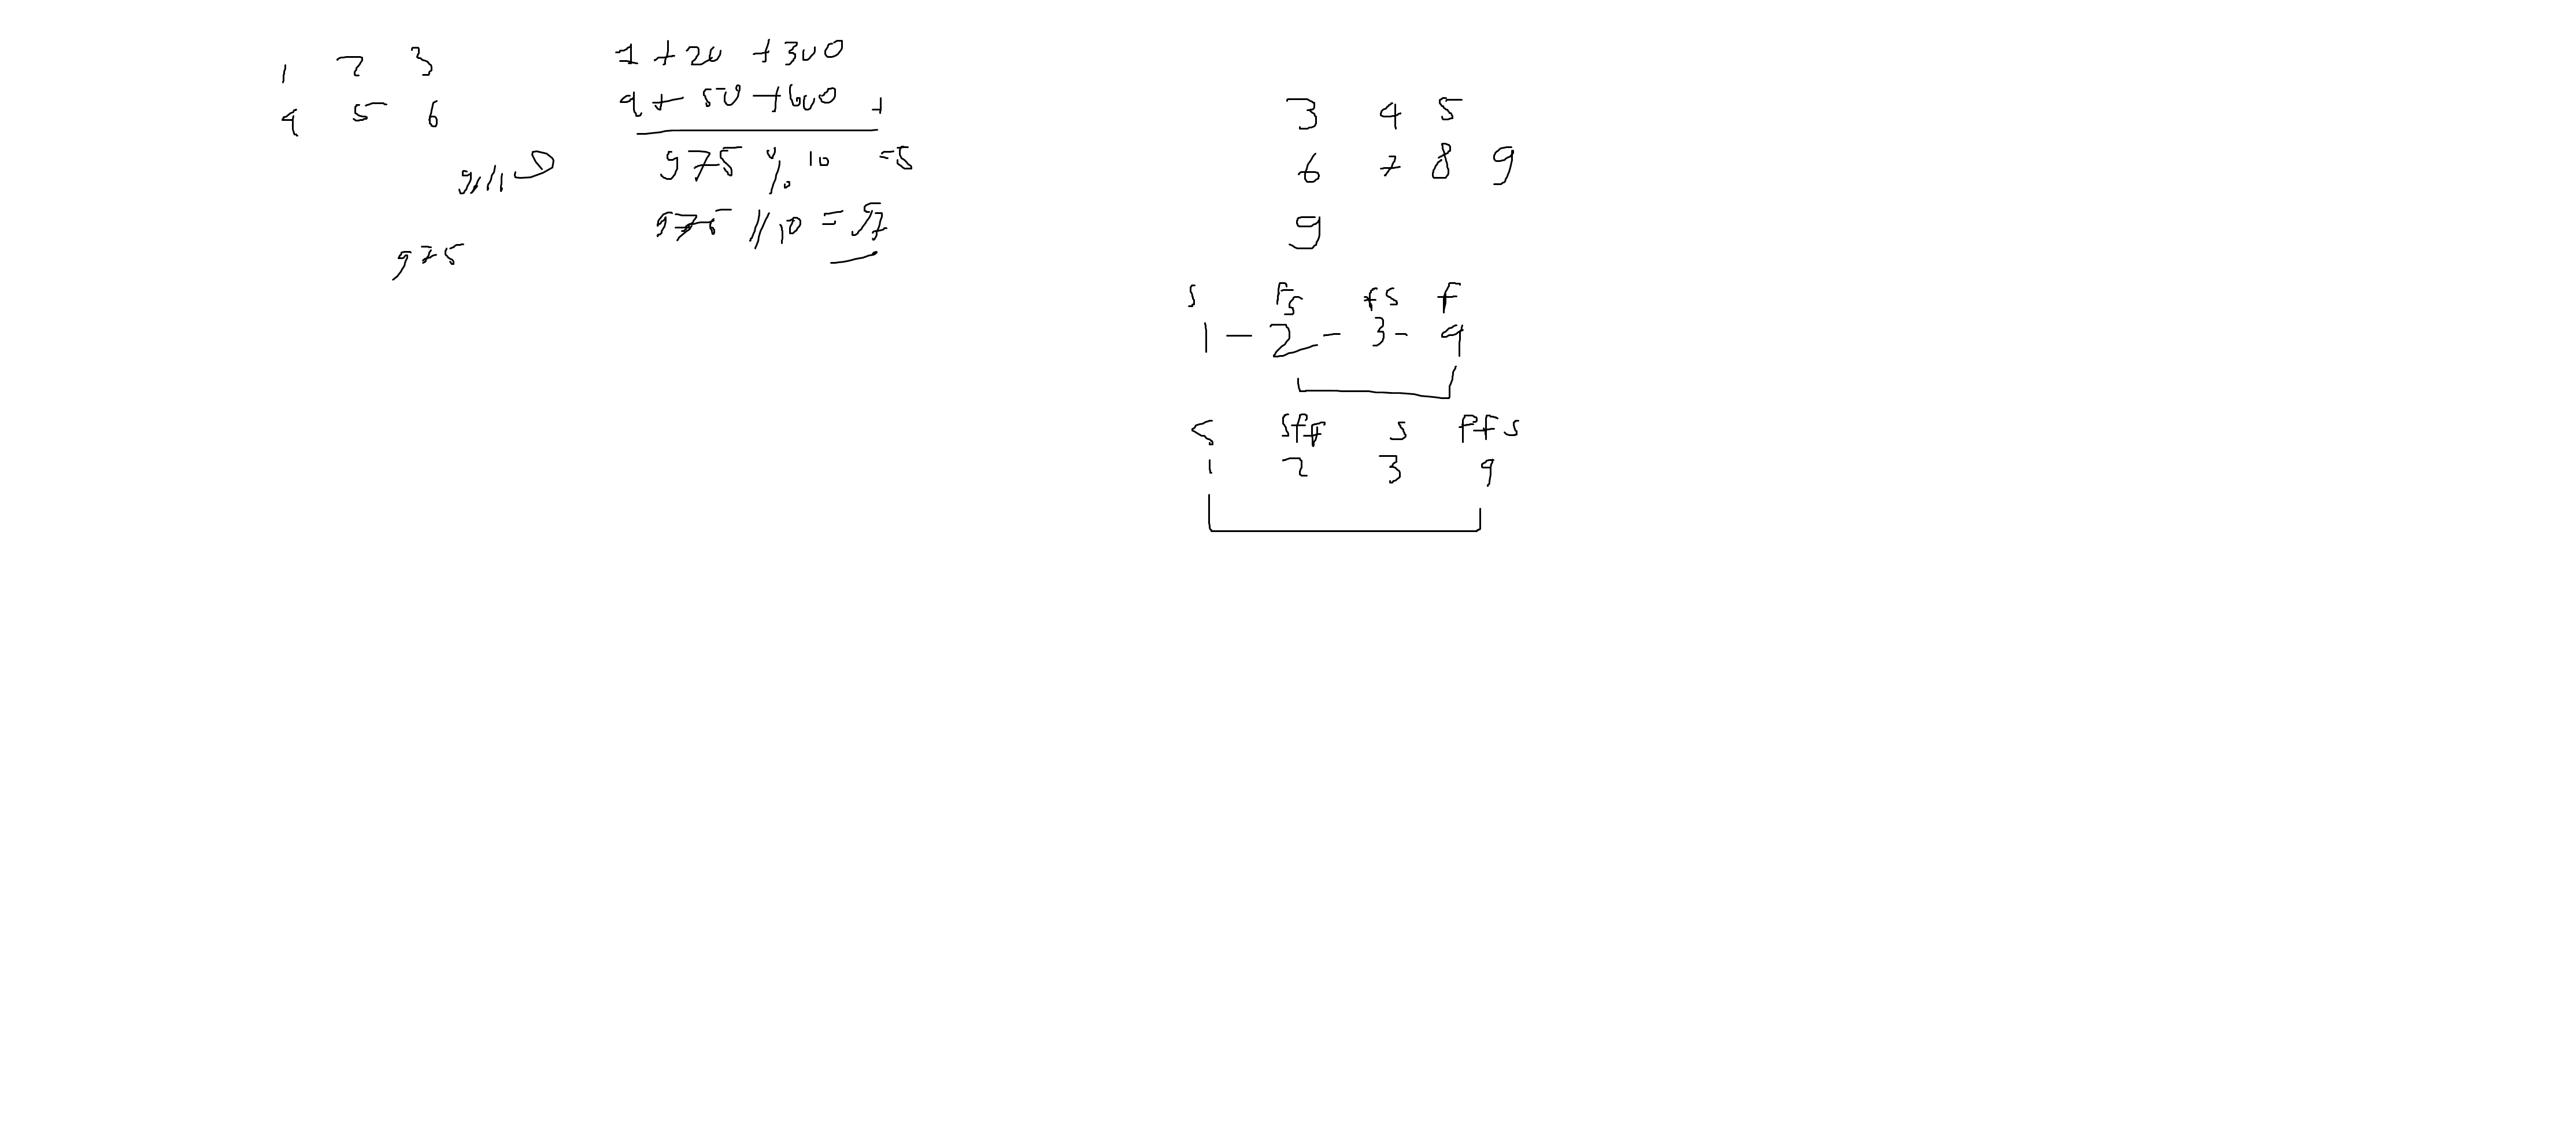 1 2 3
4 5 6
975
1 + 20 + 300
4 + 50 + 600 +
975 % 10 = 5
975 // 10 = 97
3 4 5
6 7 8 9
9
s fs fs f
1 - 2 - 3 - 4
s sff s ffs
1 2 3 4